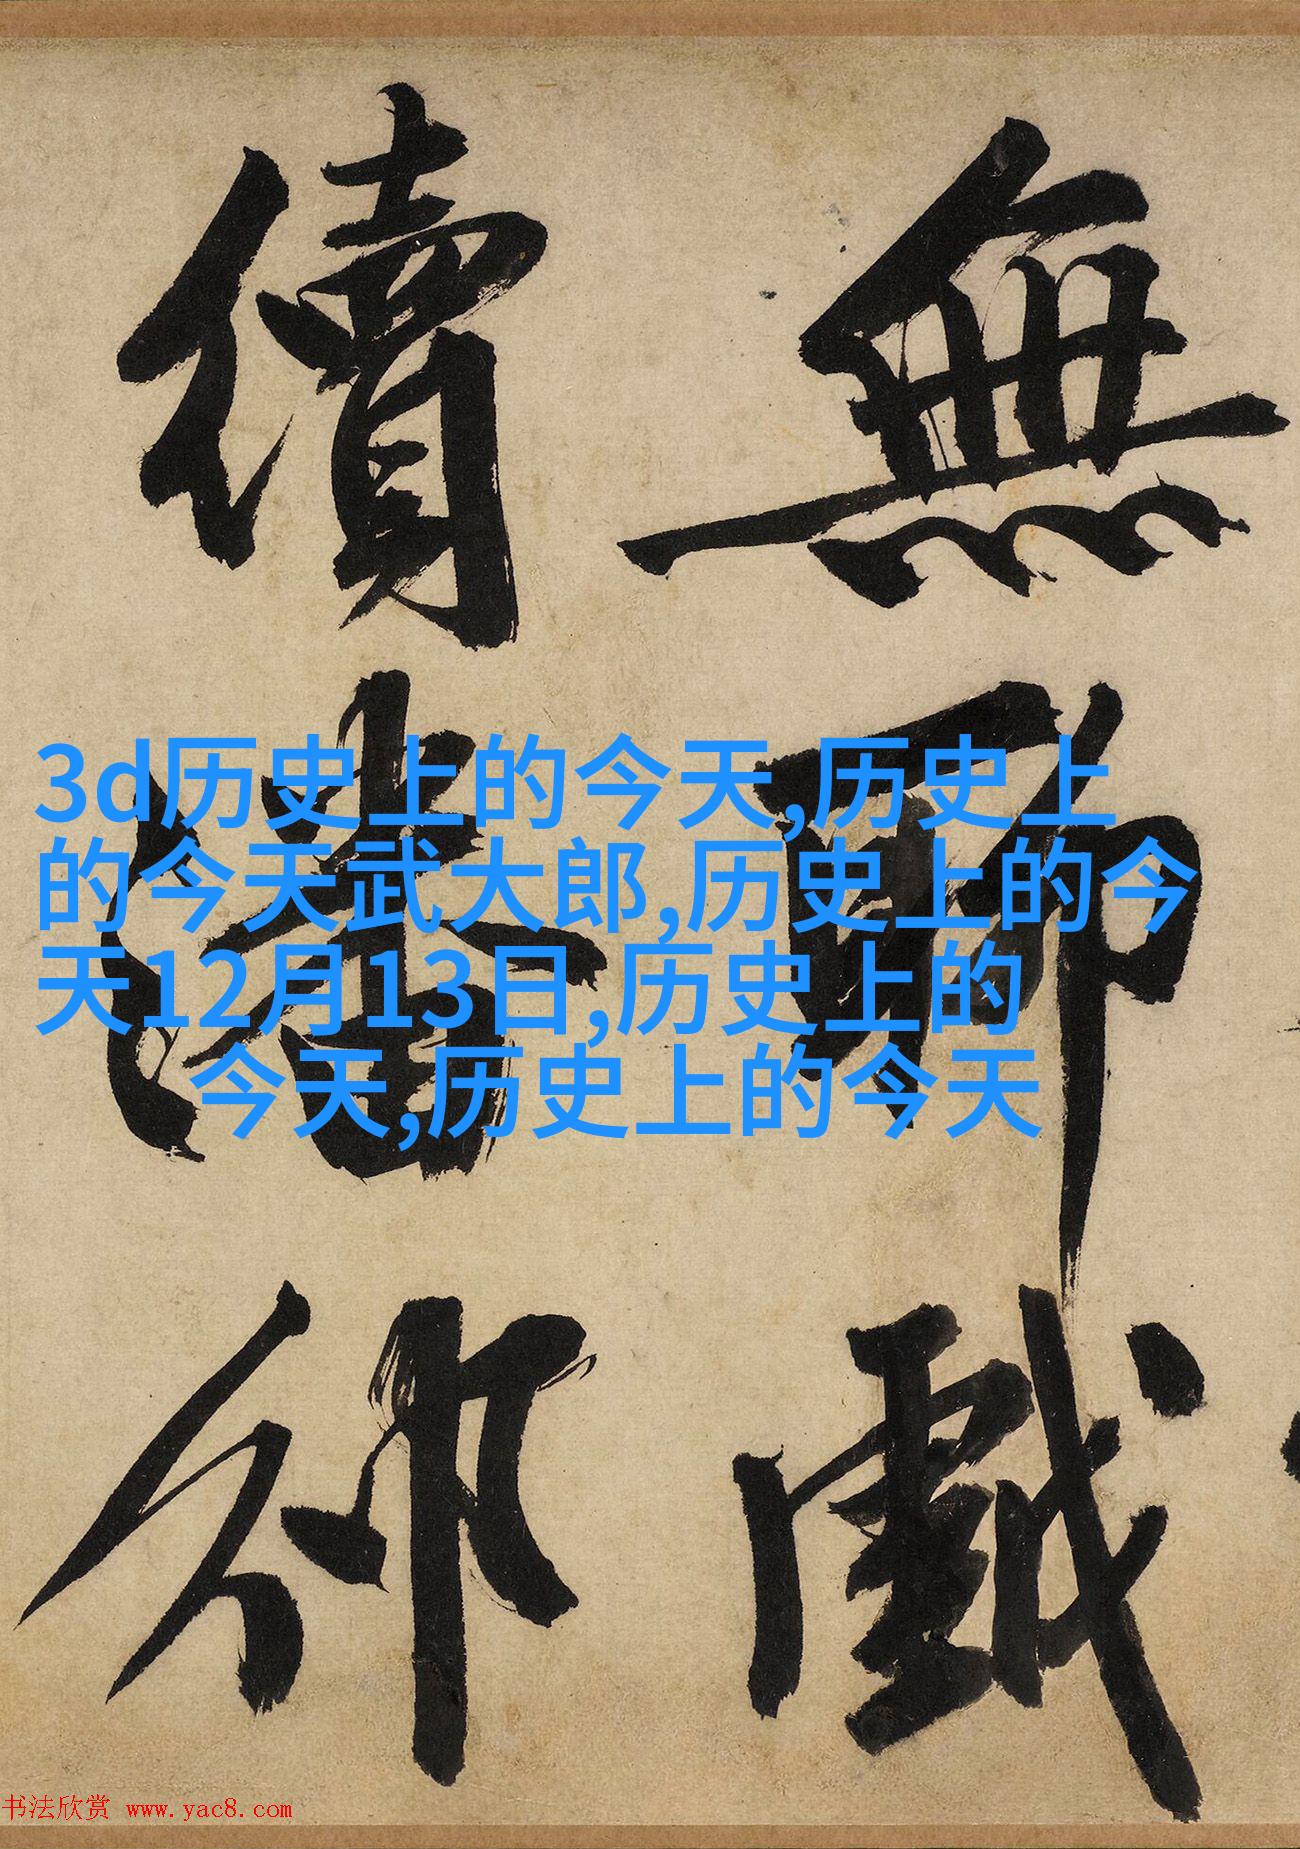 無聊戲
續潘邠
3d历史上的今天,历史上
的今天武大郎,历史上的今
天12月13日,历史上的
今天,历史上的今天
书法欣赏 www.yac8.com